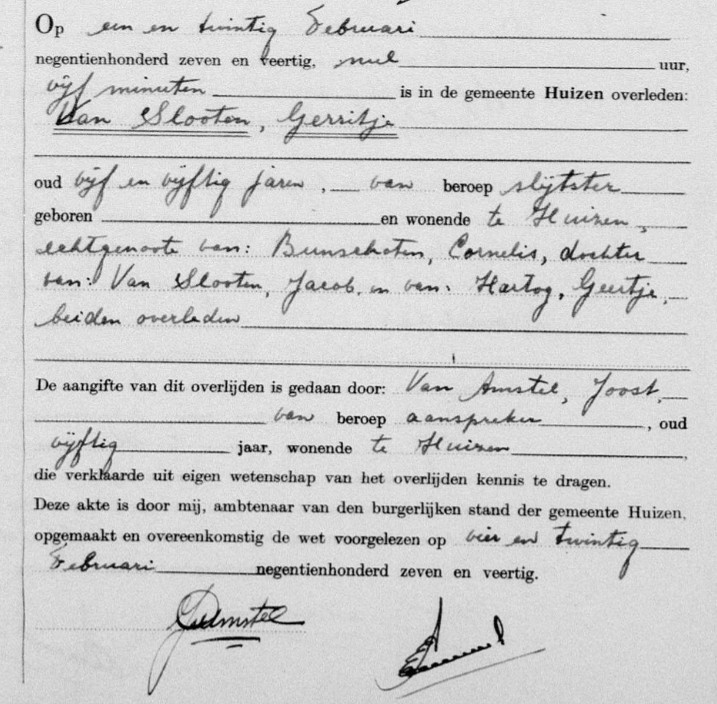 Op een en twintig Februari
negentienhonderd zeven en veertig, nul uur,
vijf minuten is in de gemeente Huizen overleden:
Van Slooten, Gerritje
oud vijf en vijftig jaren, van beroep slijtster
geboren en wonende te Huizen,
echtgenoote van: Bunschoten, Cornelis, dochter
van: Van Slooten, Jacob, en van: Hartog, Geertje,
beiden overleden
De aangifte van dit overlijden is gedaan door: Van Amstel, Joost,
van beroep aanspreker, oud
vijftig jaar, wonende te Huizen,
die verklaarde uit eigen wetenschap van het overlijden kennis te dragen.
Deze akte is door mij, ambtenaar van den burgerlijken stand der gemeente Huizen,
opgemaakt en overeenkomstig de wet voorgelezen op vier en twintig
Februari negentienhonderd zeven en veertig.